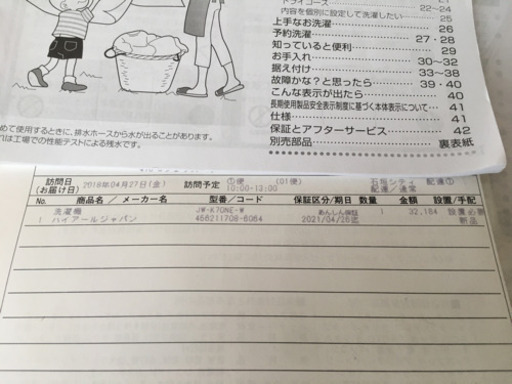 ドライコース 21
22~24
内容を個別に設定して洗濯したい 25
上手なお洗濯 26
予約洗濯 27・28
知っていると便利 29
お手入れ 30~32
据え付け 33~38
故障かな?と思ったら 39・40
こんな表示が出たら 40
長期使用製品安全表示制度に基づく本体表示について 41
仕様 41
保証とアフターサービス 42
別売部品 裏表紙
めて使用するときに、排水ホースから水が出ることがあります。
れは工場での性能テストによる残水です。
訪問日 2018年04月27日(金) 訪問予定 ①便 (01便) 石垣シティ 配達①
(お届け日) 10:00-13:00 配達/通常
No. 商品名 / メーカー名 型番/コード 保証区分/期日 数量 金額 設置/手配
洗濯機 JW-K70NE-W あんしん保証 1 32,184 設置必要
1 ハイアールジャパン 456211708-6064 2021/04/26迄 部品